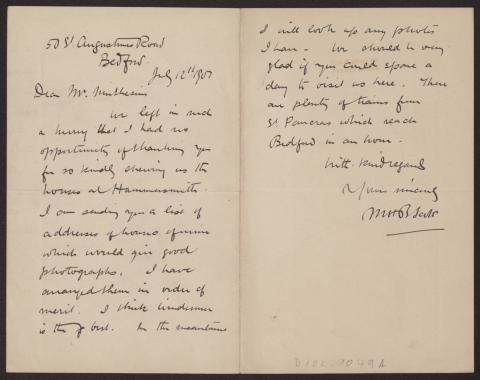 50 St Augustines Road
Bedford.
July 12th 190
Dear Mr. Muthesius
We left in such
a hurry that I had no
opportunity of thanking you
for so kindly shewing us the
houses at Hammersmith
I am sending you a list of
addresses of houses of mine
which would give good
photographs. I have
arranged them in order of
merit. I think
is the best. In the meantime
I will look up any photos
I have. We should be very
glad if you could spare a
day to visit us here. There
are plenty of trains from
St. Pancras which reach
Bedford in an hour.
With kind regards
Yours sincerely
MHB Scott
D102-1049A